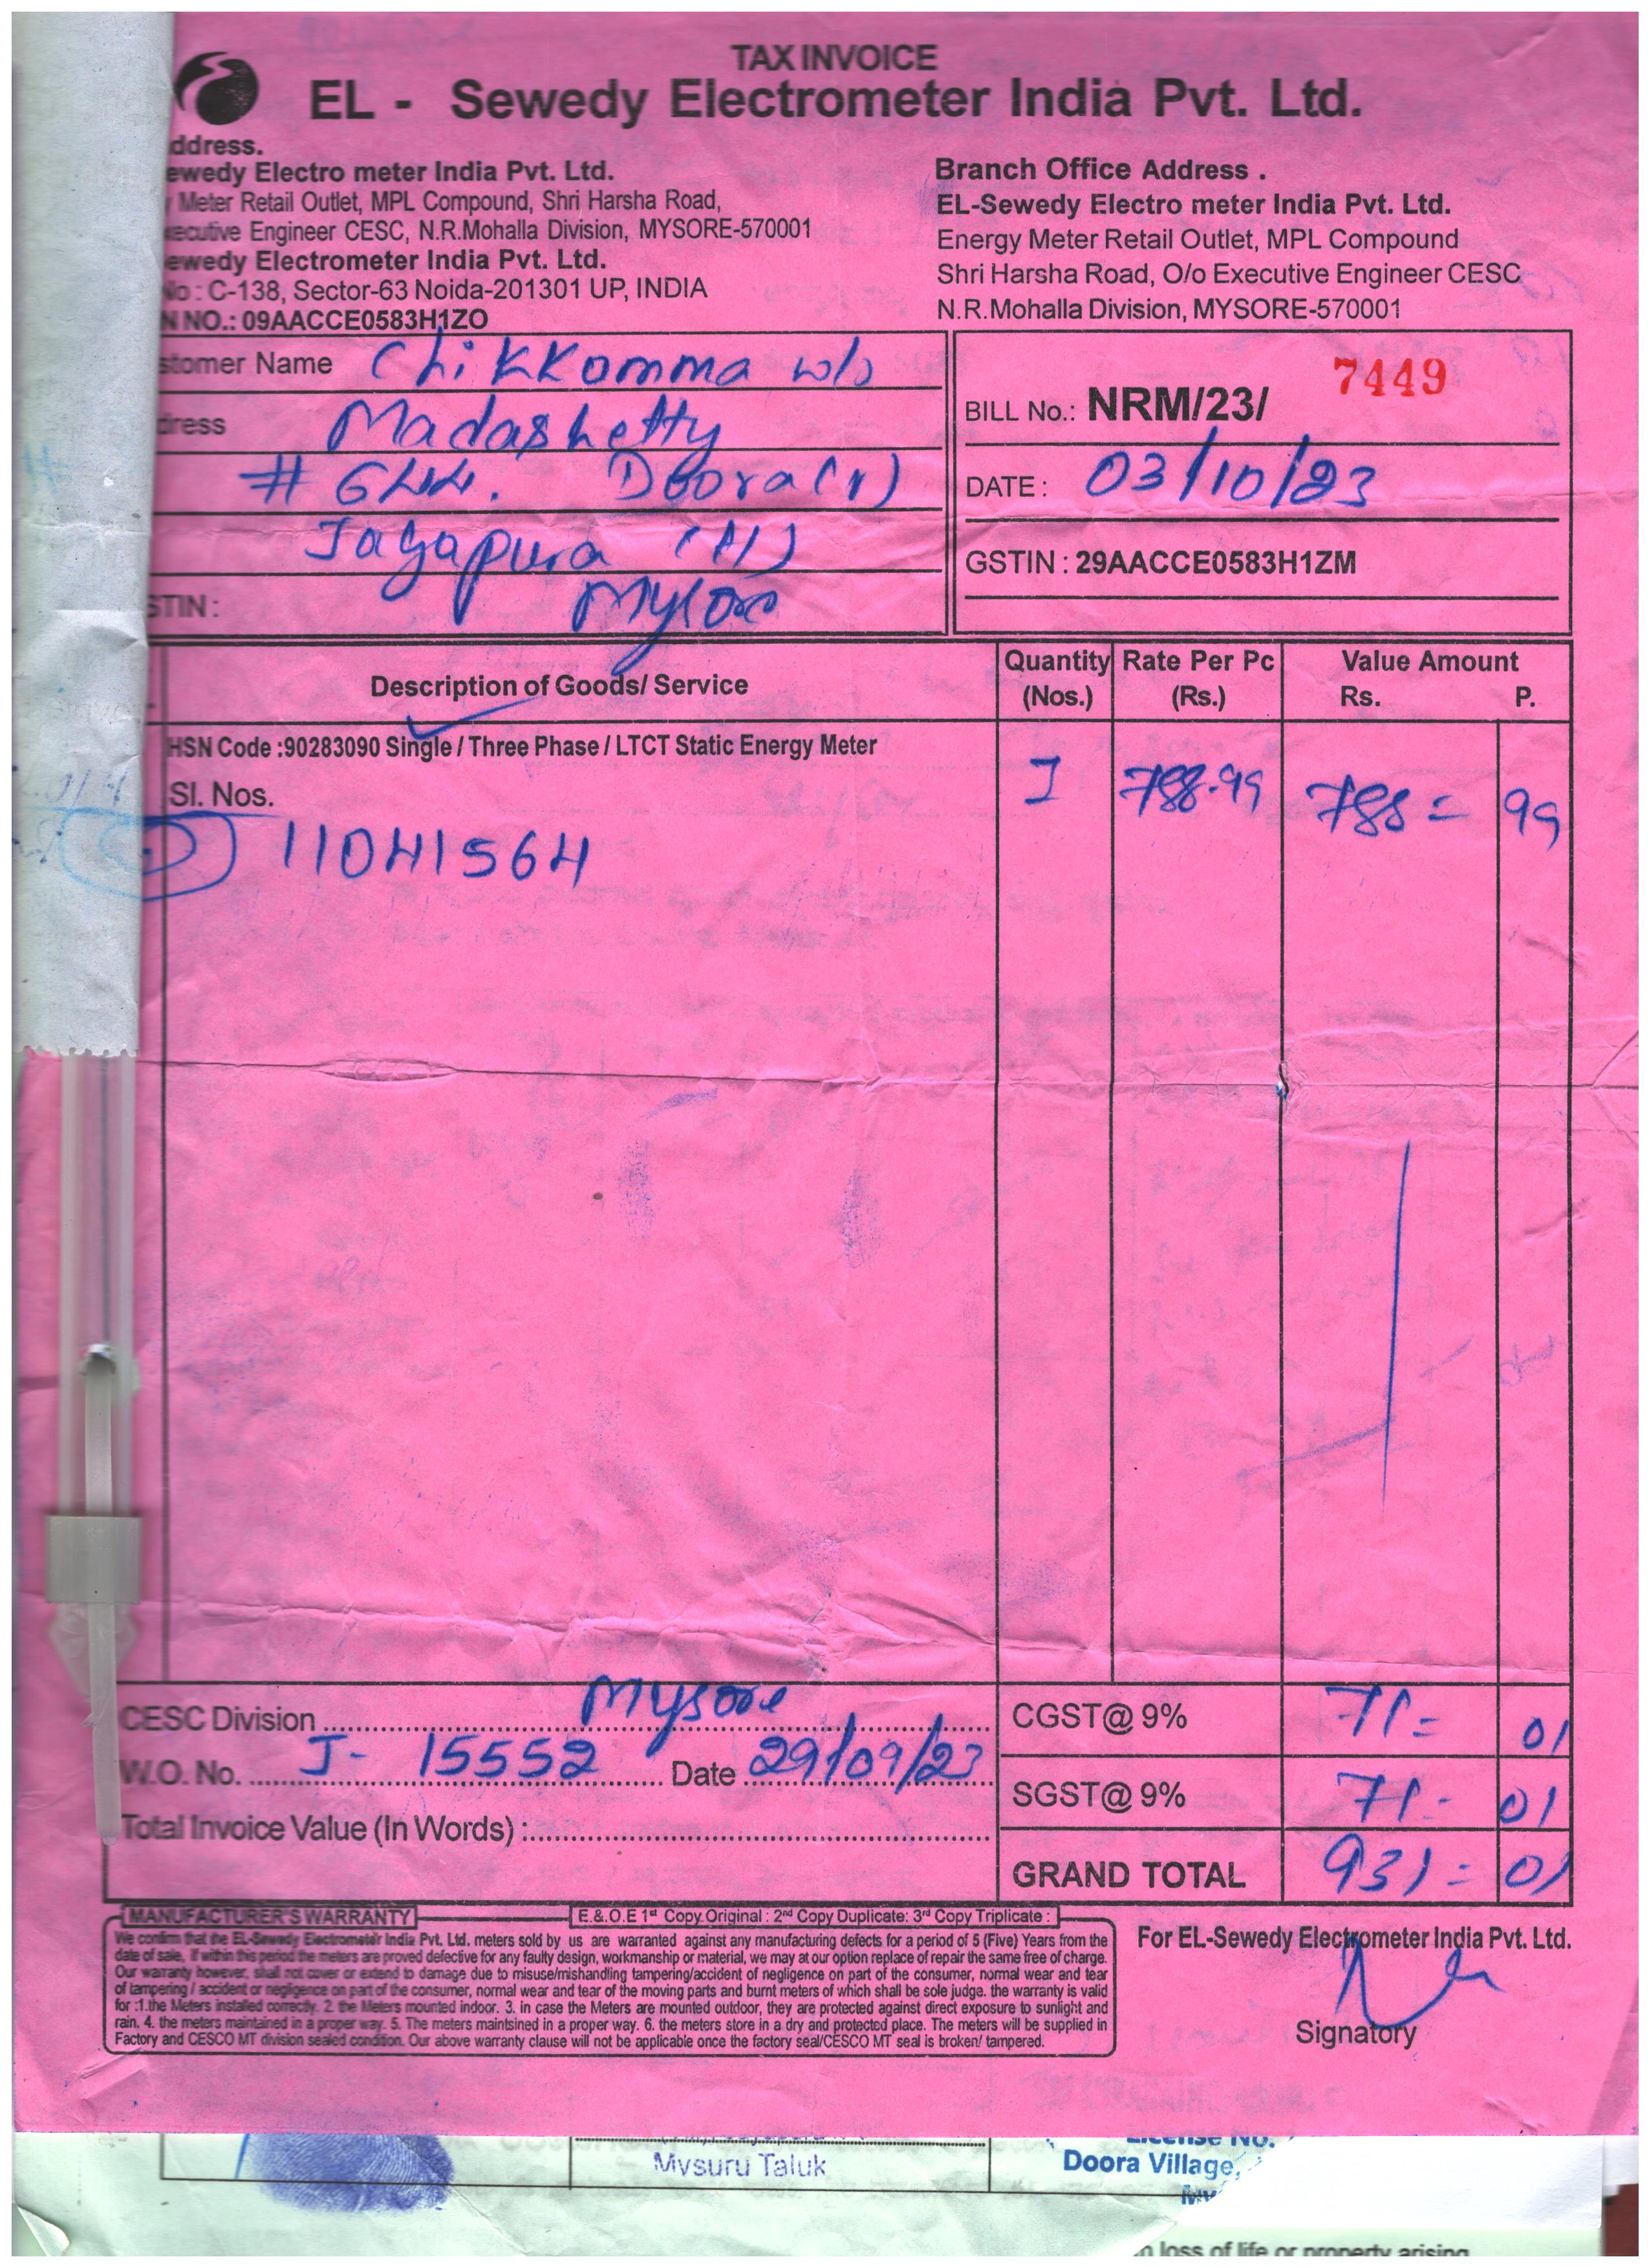 TAX INVOICE
EL - Sewedy Electrometer India Pvt. Ltd.
ddress.
ewedy Electro meter India Pvt. Ltd.
Meter Retail Outlet, MPL Compound, Shri Harsha Road,
ecutive Engineer CESC, N.R.Mohalla Division, MYSORE-570001
ewedy Electrometer India Pvt. Ltd.
No : C-138, Sector-63 Noida-201301 UP, INDIA
N NO.: 09AACCE0583H1ZO
Branch Office Address .
EL-Sewedy Electro meter India Pvt. Ltd.
Energy Meter Retail Outlet, MPL Compound
Shri Harsha Road, O/o Executive Engineer CESC
N.R.Mohalla Division, MYSORE-570001
stomer Name Chikkomma w/o
dress Madashetty
# 644. Doora (V)
Jayapura (H)
STIN : Mysore
BILL No.: NRM/23/ 7449
DATE : 03/10/23
GSTIN : 29AACCE0583H1ZM
Description of Goods/ Service
Quantity (Nos.)
Rate Per Pc (Rs.)
Value Amount
Rs. P.
HSN Code :90283090 Single / Three Phase / LTCT Static Energy Meter
Sl. Nos.
1 788.99 788 = 99
11041564
CESC Division Mysore
W.O. No. J- 15552 Date 29/09/23
Total Invoice Value (In Words) :
CGST@ 9% 71 = 01
SGST@ 9% 71 - 01
GRAND TOTAL 931 = 01
MANUFACTURER'S WARRANTY
E.& O.E 1st Copy Original : 2nd Copy Duplicate: 3rd Copy Triplicate :
We confirm that the EL-Sewedy Electrometer India Pvt. Ltd. meters sold by us are warranted against any manufacturing defects for a period of 5 (Five) Years from the
date of sale. If within this period the meters are proved defective for any faulty design, workmanship or material, we may at our option replace of repair the same free of charge.
Our warranty however, shall not cover or extend to damage due to misuse/mishandling tampering/accident of negligence on part of the consumer, normal wear and tear
of tampering / accident or negligence on part of the consumer, normal wear and tear of the moving parts and burnt meters of which shall be sole judge. the warranty is valid
for :1.the Meters installed correctly. 2. the Meters mounted indoor. 3. in case the Meters are mounted outdoor, they are protected against direct exposure to sunlight and
rain. 4. the meters maintained in a proper way. 5. The meters maintsined in a proper way. 6. the meters store in a dry and protected place. The meters will be supplied in
Factory and CESCO MT division sealed condition. Our above warranty clause will not be applicable once the factory seal/CESCO MT seal is broken/ tampered.
For EL-Sewedy Electrometer India Pvt. Ltd.
Signatory
Mysuru Taluk
License No.
Doora Village,
loss of life or property arising